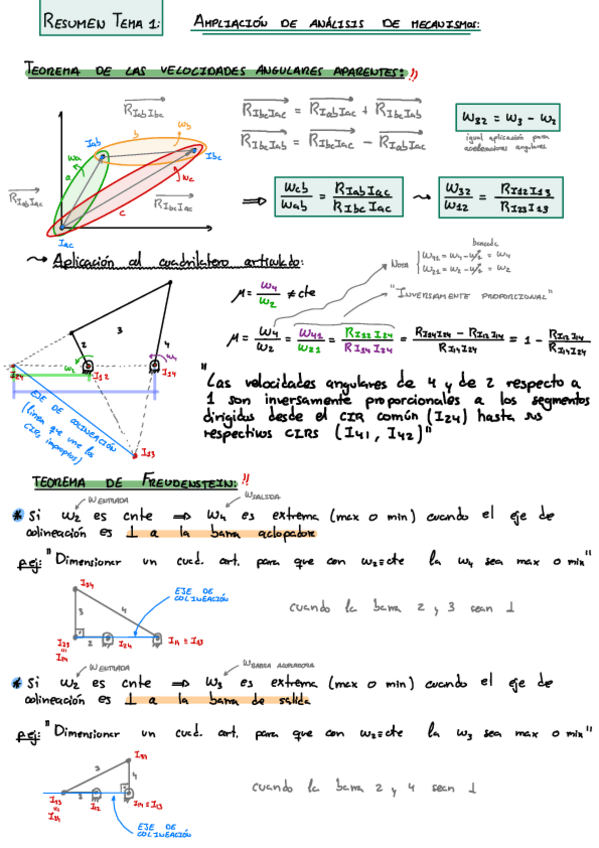 RESUMEN TEMA 1: AMPLIACIÓN DE ANÁLISIS DE MECANISMOS:
TEOREMA DE LAS VELOCIDADES ANGULARES APARENTES: !!
R IabIbc
R IbcIac = R IabIac + R IbcIab
R IbcIab = R IbcIac − R IabIac
ω32 = ω3 − ω2
igual aplicación para
aceleraciones angulares
Iab
b
ωb
Ibc
ωa
a
ωc
c
Iac
R IabIac
R IbcIac
⇒ ωcb / ωab = R IabIac / R IbcIac ⤳ ω32 / ω12 = R I12I13 / R I23I13
⤳ Aplicación al cuadrilatero articulado:
μ = ω4 / ω2 ≠ cte
bancada
Nota { ω41 = ω4 − ω1 = ω4
ω21 = ω2 − ω1 = ω2
"INVERSAMENTE PROPORCIONAL"
μ = ω4 / ω2 = ω41 / ω21 = R I12I24 / R I14I24 = R I14I24 − R I12I14 / R I14I24 = 1 − R I12I14 / R I14I24
3
2
4
ω2
ω4
I24
I12
I14
I13
EJE DE COLINEACIÓN
(linea que une los
CIRs impropios)
"Las velocidades angulares de 4 y de 2 respecto a
1 son inversamente proporcionales a los segmentos
dirigidos desde el CIR común (I24) hasta sus
respectivos CIRS (I41, I42)"
TEOREMA DE FREUDENSTEIN: !!
ω ENTRADA
ω SALIDA
* Si ω2 es cnte ⇒ ω4 es extrema (max o min) cuando el eje de
colineación es ⊥ a la barra acopladora
p.ej: "Dimensionar un cuad. art. para que con ω2=cte la ω4 sea max o min"
I34
EJE DE
COLINEACIÓN
3
4
2
I23
I24
I14 ≡ I13
cuando la barra 2 y 3 sean ⊥
ω ENTRADA
ω BARRA ACOPLADORA
* Si ω2 es cnte ⇒ ω3 es extrema (max o min) cuando el eje de
colineación es ⊥ a la barra de salida
p.ej: "Dimensionar un cuad. art. para que con ω2=cte la ω3 sea max o min"
I34
3
4
2
I12
EJE DE
COLINEACIÓN
cuando la barra 2 y 4 sean ⊥